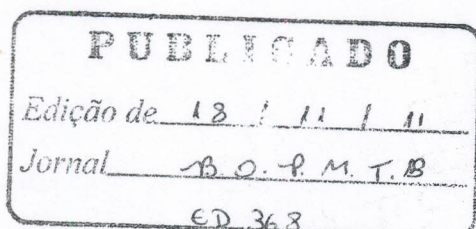 PUBLICADO
Edição de 18 / 11 / 11
Jornal B.O.P.M.T.B
ED 368